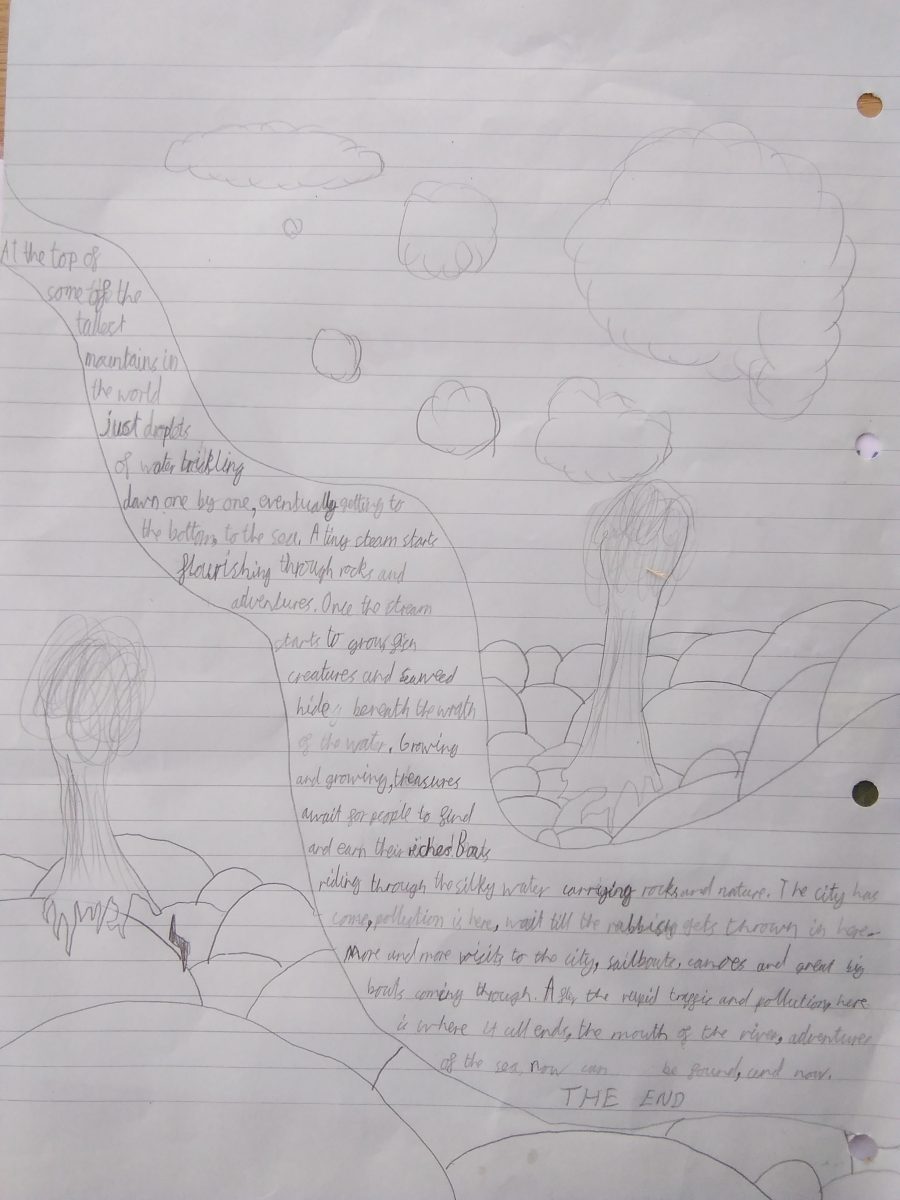 At the top of
some of the
tallest
mountains in
the world
just droplets
of water trickling
down one by one, eventually getting to
the bottom, to the sea. A tiny steam starts
flourishing through rocks and
adventures. Once the stream
starts to grow fish
creatures and seaweed
hide beneath the wrath
of the water. Growing
and growing, treasures
await for people to find
and earn their riches. Boats
riding through the silky water carrying rocks and nature. The city has
come, pollution is here, wait till the rubbish gets thrown in here.
More and more visits to the city, sailboats, canoes and great big
boats coming through. After the rapid traffic and pollution, here
is where it all ends, the mouth of the river, adventures
of the sea, now can be found, and now.
THE END